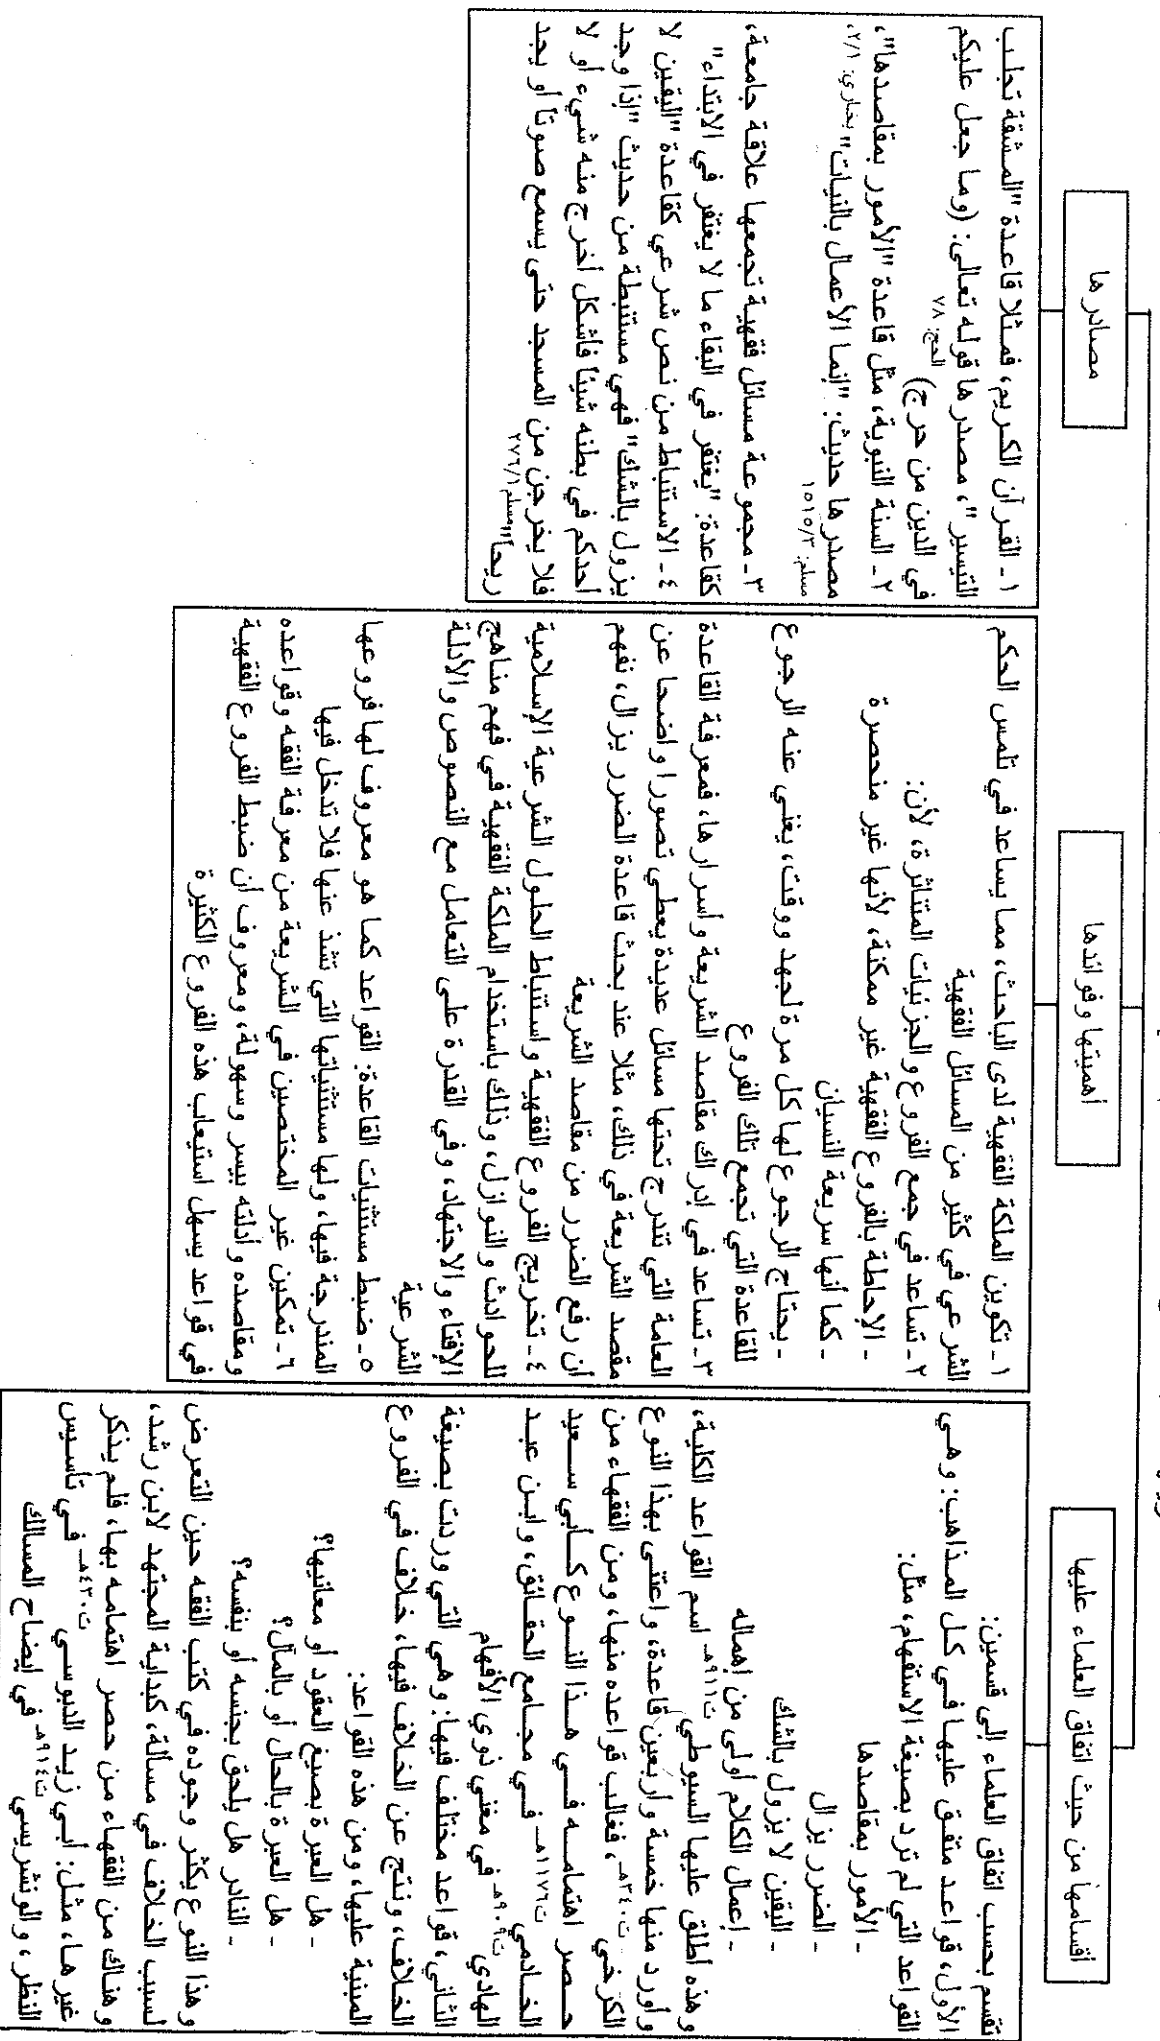 مصادرها
١- القرآن الكريم، فمثلا قاعدة "المشقة تجلب
التيسير"، مصدرها قوله تعالى: (وما جعل عليكم
في الدين من حرج) الحج: ٧٨
٢- السنة النبوية، مثل قاعدة "الأمور بمقاصدها"،
مصدرها حديث: "إنما الأعمال بالنيات" بخاري: ٢/١،
مسلم: ١٥١٥/٣
٣- مجموعة مسائل فقهية تجمعها علاقة جامعة،
كقاعدة: "يغتفر في البقاء ما لا يغتفر في الابتداء"
٤- الاستنباط من نص شرعي كقاعدة "اليقين لا
يزول بالشك" فهي مستنبطة من حديث "إذا وجد
أحدكم في بطنه شيئا فأشكل أخرج منه شيء أو لا
فلا يخرجن من المسجد حتى يسمع صوتا أو يجد
ريحا" مسلم ٢٧٦/١
أهميتها وفوائدها
١- تكوين الملكة الفقهية لدى الباحث، مما يساعد في تلمس الحكم
الشرعي في كثير من المسائل الفقهية
٢- تساعد في جمع الفروع والجزئيات المتناثرة، لأن:
- الإحاطة بالفروع الفقهية غير ممكنة، لأنها غير منحصرة
- كما أنها سريعة النسيان
- يحتاج الرجوع لها كل مرة لجهد ووقت، يغني عنه الرجوع
للقاعدة التي تجمع تلك الفروع
٣- تساعد في إدراك مقاصد الشريعة وأسرارها، فمعرفة القاعدة
العامة التي تندرج تحتها مسائل عديدة يعطي تصورا واضحا عن
مقصد الشريعة في ذلك، مثلا عند بحث قاعدة الضرر يزال، نفهم
أن رفع الضرر من مقاصد الشريعة
٤- تخريج الفروع الفقهية واستنباط الحلول الشرعية الإسلامية
للحوادث والنوازل، وذلك باستخدام الملكة الفقهية في فهم مناهج
الإفتاء والاجتهاد، وفي القدرة على التعامل مع النصوص والأدلة
الشرعية
٥- ضبط مستثنيات القاعدة: القواعد كما هو معروف لها فروعها
المندرجة فيها، ولها مستثنياتها التي تشذ عنها فلا تدخل فيها
٦- تمكين غير المختصين في الشريعة من معرفة الفقه وقواعده
ومقاصده وأدلته بيسر وسهولة، ومعروف أن ضبط الفروع الفقهية
في قواعد يسهل استيعاب هذه الفروع الكثيرة
أقسامها من حيث اتفاق العلماء عليها
تقسم بحسب اتفاق العلماء إلى قسمين:
الأول، قواعد متفق عليها في كل المذاهب: وهي
القواعد التي لم ترد بصيغة الاستفهام، مثل:
- الأمور بمقاصدها
- الضرر يزال
- اليقين لا يزول بالشك
- إعمال الكلام أولى من إهماله
وهذه أطلق عليها السيوطي ت٩١١هـ اسم القواعد الكلية،
وأورد منها خمسة وأربعين قاعدة، واعتنى بهذا النوع
الكرخي ت٣٤٠هـ، فغالب قواعده منها، ومن الفقهاء من
حصر اهتمامه في هذا النوع كأبي سعيد
الخادمي ت١١٧٦هـ في مجامع الحقائق، وابن عبد
الهادي ت٩٠٩هـ في مغني ذوي الأفهام
الثاني، قواعد مختلف فيها: وهي التي وردت بصيغة
الخلاف، ونتج عن الخلاف فيها، خلاف في الفروع
المبنية عليها، ومن هذه القواعد:
- هل العبرة بصيغ العقود أو معانيها؟
- هل العبرة بالحال أو بالمآل؟
- النادر هل يلحق بجنسه أو بنفسه؟
وهذا النوع يكثر وجوده في كتب الفقه حين التعرض
لسبب الخلاف في مسألة، كبداية المجتهد لابن رشد،
وهناك من الفقهاء من حصر اهتمامه بها، فلم يذكر
غيرها، مثل: أبي زيد الدبوسي ت٤٣٠هـ في تأسيس
النظر، والونشريسي ت٩١٤هـ في إيضاح المسالك